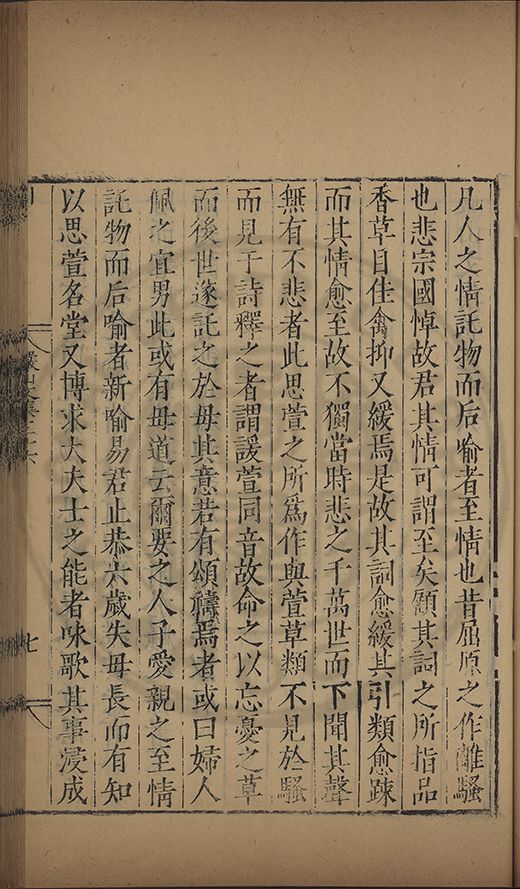 凡人之情託物而后喻者至情也昔屈原之作離騷
也悲宗國悼故君其情可謂至矣顧其詞之所指品
香草目佳禽抑又緩焉是故其詞愈緩其引類愈踈
而其情愈至故不獨當時悲之千萬世而下聞其聲
無有不悲者此思萱之所爲作與萱草類不見於騷
而見于詩釋之者謂諼萱同音故命之以忘憂之草
而後世遂託之於母其意若有頌禱焉者或曰婦人
佩之宜男此或有母道云爾要之人子愛親之至情
託物而后喻者新喻易君止恭六歲失母長而有知
以思萱名堂又博求大夫士之能者咏歌其事浸成
七